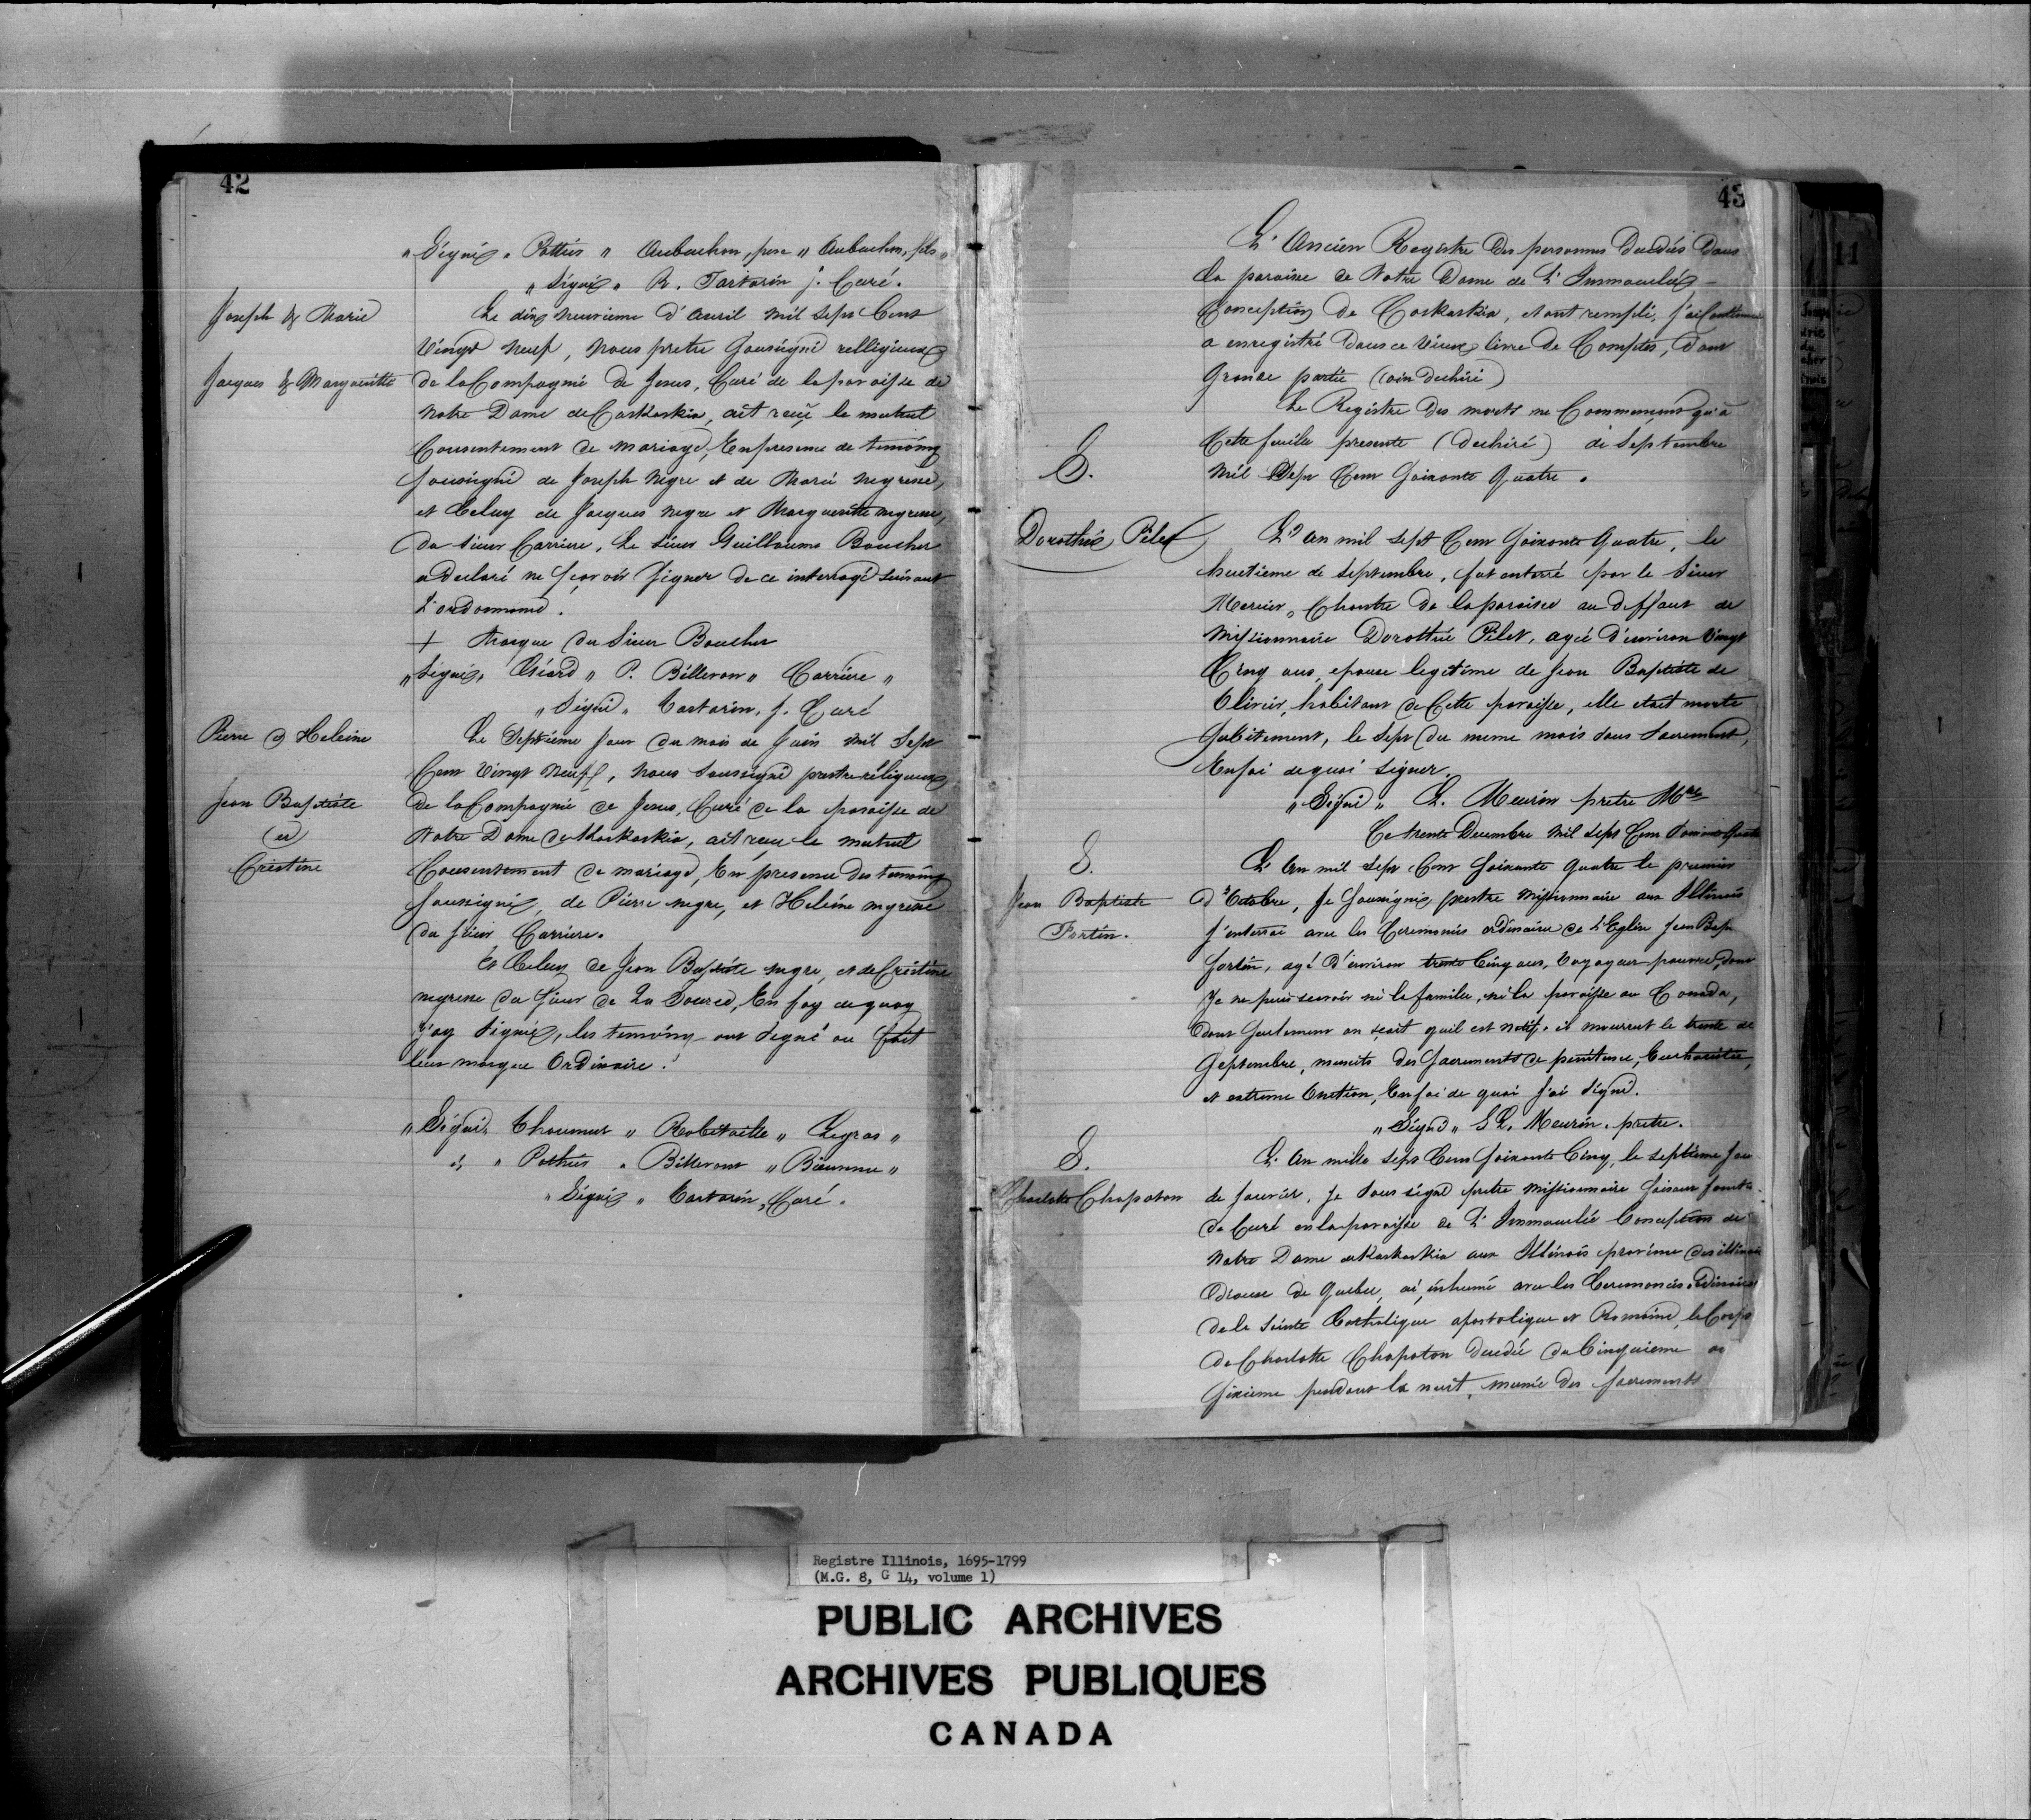 42
„ Signé „ Pottier „ Aubuchon, pere „ Aubuchon, fils „
„ Signé „ R. Tartarin j. Curé.
Joseph & Marie
Le dix neuvieme d'auril mil sept Cent
Vingt neuf, nous pretre soussigné relligieux
Jacques & Marguerithe
de la Compagnie de Jesus, Curé de la paroisse de
Notre Dame de Caskaskia, ait reçu le mutuel
Consentement de mariage, En presence de temoins
soussigné de Joseph negre et de Marie negresse,
et Celuy de Jacques negre et Marguerithe negresse,
du sieur Carriere, Le sieur Guillaume Boucher
a declaré ne sçavoir signer de ce interrogé suivant
L'ordonnance.
+ Marque du Sieur Boucher
„ Signé, Girard „ P. Billeron „ Carriere „
„ Signé „ Tartarin, j. Curé
Pierre & Heleine
Le Septieme jour du mois de Juin mil Sept
Cent Vingt neuf, nous soussigné prestre réligieux
Jean Baptiste
de la Compagnie de Jesus, Curé de la paroisse de
et
Notre Dame de Kaskaskia, ait reçu le mutuel
Cristine
Consentement de mariage, En presence des temoins
soussignés, de Pierre negre, et Heleine negresse
du sieur Carriere.
Et Celuy de Jean Baptiste negre, et de Cristine
negresse du sieur de La Source, En foy de quoy
j'ay signé, les temoins ont signé ou fait
leur marque Ordinaire.
„ Signé, Thaumur „ Robitaille „ Legras „
„ Pothier „ Billeront „ Bienvenu „
„ Signé „ Tartarin, Curé.
43
L'Ancien Registre des personnes Decedés Dans
la paroise de Notre Dame de L'Immaculée
Conception de Caskaskia, etant rempli, j'ai Continué
a enregistré dans ce Vieux livre de Comptes, dont
Grande partie (coin dechiré)
Le Registre des morts ne Commençant qu'à
Cette feuille presente (dechiré) de Septembre
S.
Mil Sept Cent Soixante Quatre.
Dorothé Pilet
L'an mil sept Cent Soixante Quatre, le
huitieme de Septembre, fut enterré par le Sieur
Mercier, Chantre de la paroisse au deffaut de
Missionnaire Dorothée Pilet, agée d'environ Vingt
Cinq ans, epouse legitime de Jean Baptiste de
Olivier, habitant de Cette paroisse, elle etait morte
subitement, le Sept du meme mois sans Sacrement,
En foi de quoi signer.
„ Signé „ L. Meurin pretre Mre
Ce trente Decembre mil sept Cent Soixante Quatre
S.
L'an mil sept Cent Soixante quatre le premier
Jean Baptiste
d'Octobre, Je soussignés prestre Missionnaire aux Illinois
Fortin.
j'enterrai avec les Ceremonies ordinaires de L'Eglise Jean Bap
fortin, agé d'environ trente Cinq ans, Voyageur pauvre, dont
Je ne puis sçavoir ni la famille, ni la paroisse au Canada,
dont seulement on sçait qu'il est natif. il mourrut le trente de
Septembre, munits des Sacrements de penitence, Eucharistie,
et extreme Onction, En foi de quoi j'ai Signé.
„ Signé „ S L. Meurin. pretre.
S.
L'An mille sept Cent Soixante Cinq, le septieme jou
Charlotte Chapaton
de janvier, Je Sous signé pretre Missionnaire faisant fonct
de Curé en la paroisse de L'Immaculée Conception de
Notre Dame de Kaskaskia aux Illinois province des illinois
diocese de Quebec, ai inhumé avec les Ceremonies ordinaires
de la Sainte Catholique apostolique et Romaine, le Corps
de Charlotte Chapaton decedée du Cinquieme au
sixieme pendant la nuit, munie des sacrements
Registre Illinois, 1695-1799
(M.G. 8, G 14, volume 1)
PUBLIC ARCHIVES
ARCHIVES PUBLIQUES
CANADA